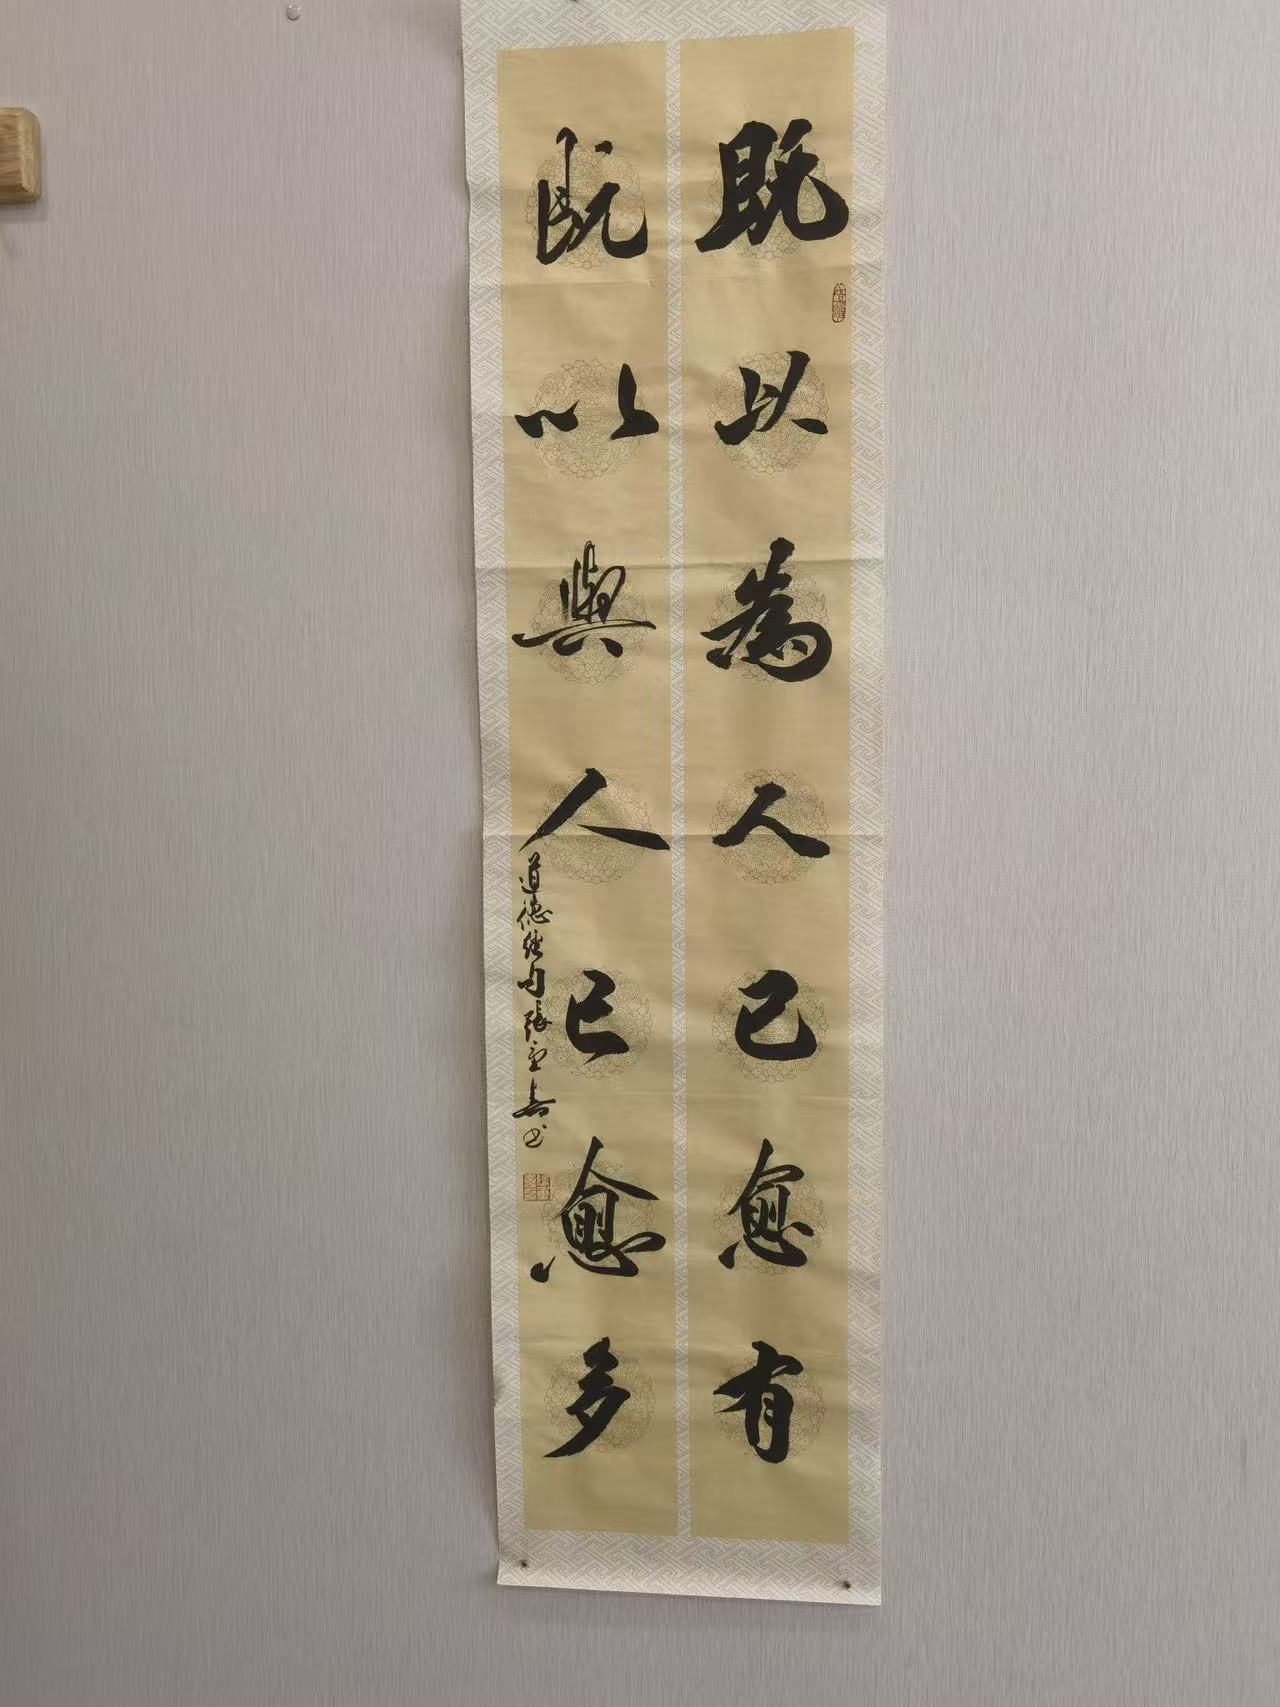 既以為人己愈有
既以與人己愈多
道德經句張
書